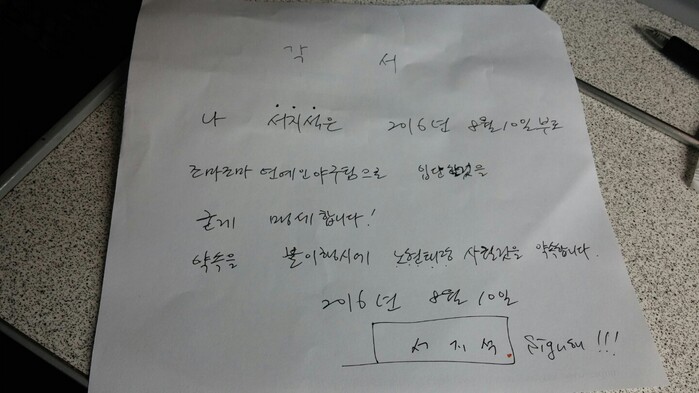 각 서
나 서지석은 2016년 8월 10일부로
조마조마 연예인야구팀으로 입단할것을
굳게 맹세합니다!
약속을 불이행시에 노현태랑 사릴것을 약속합니다.
2016년 8월 10일
서 지 석